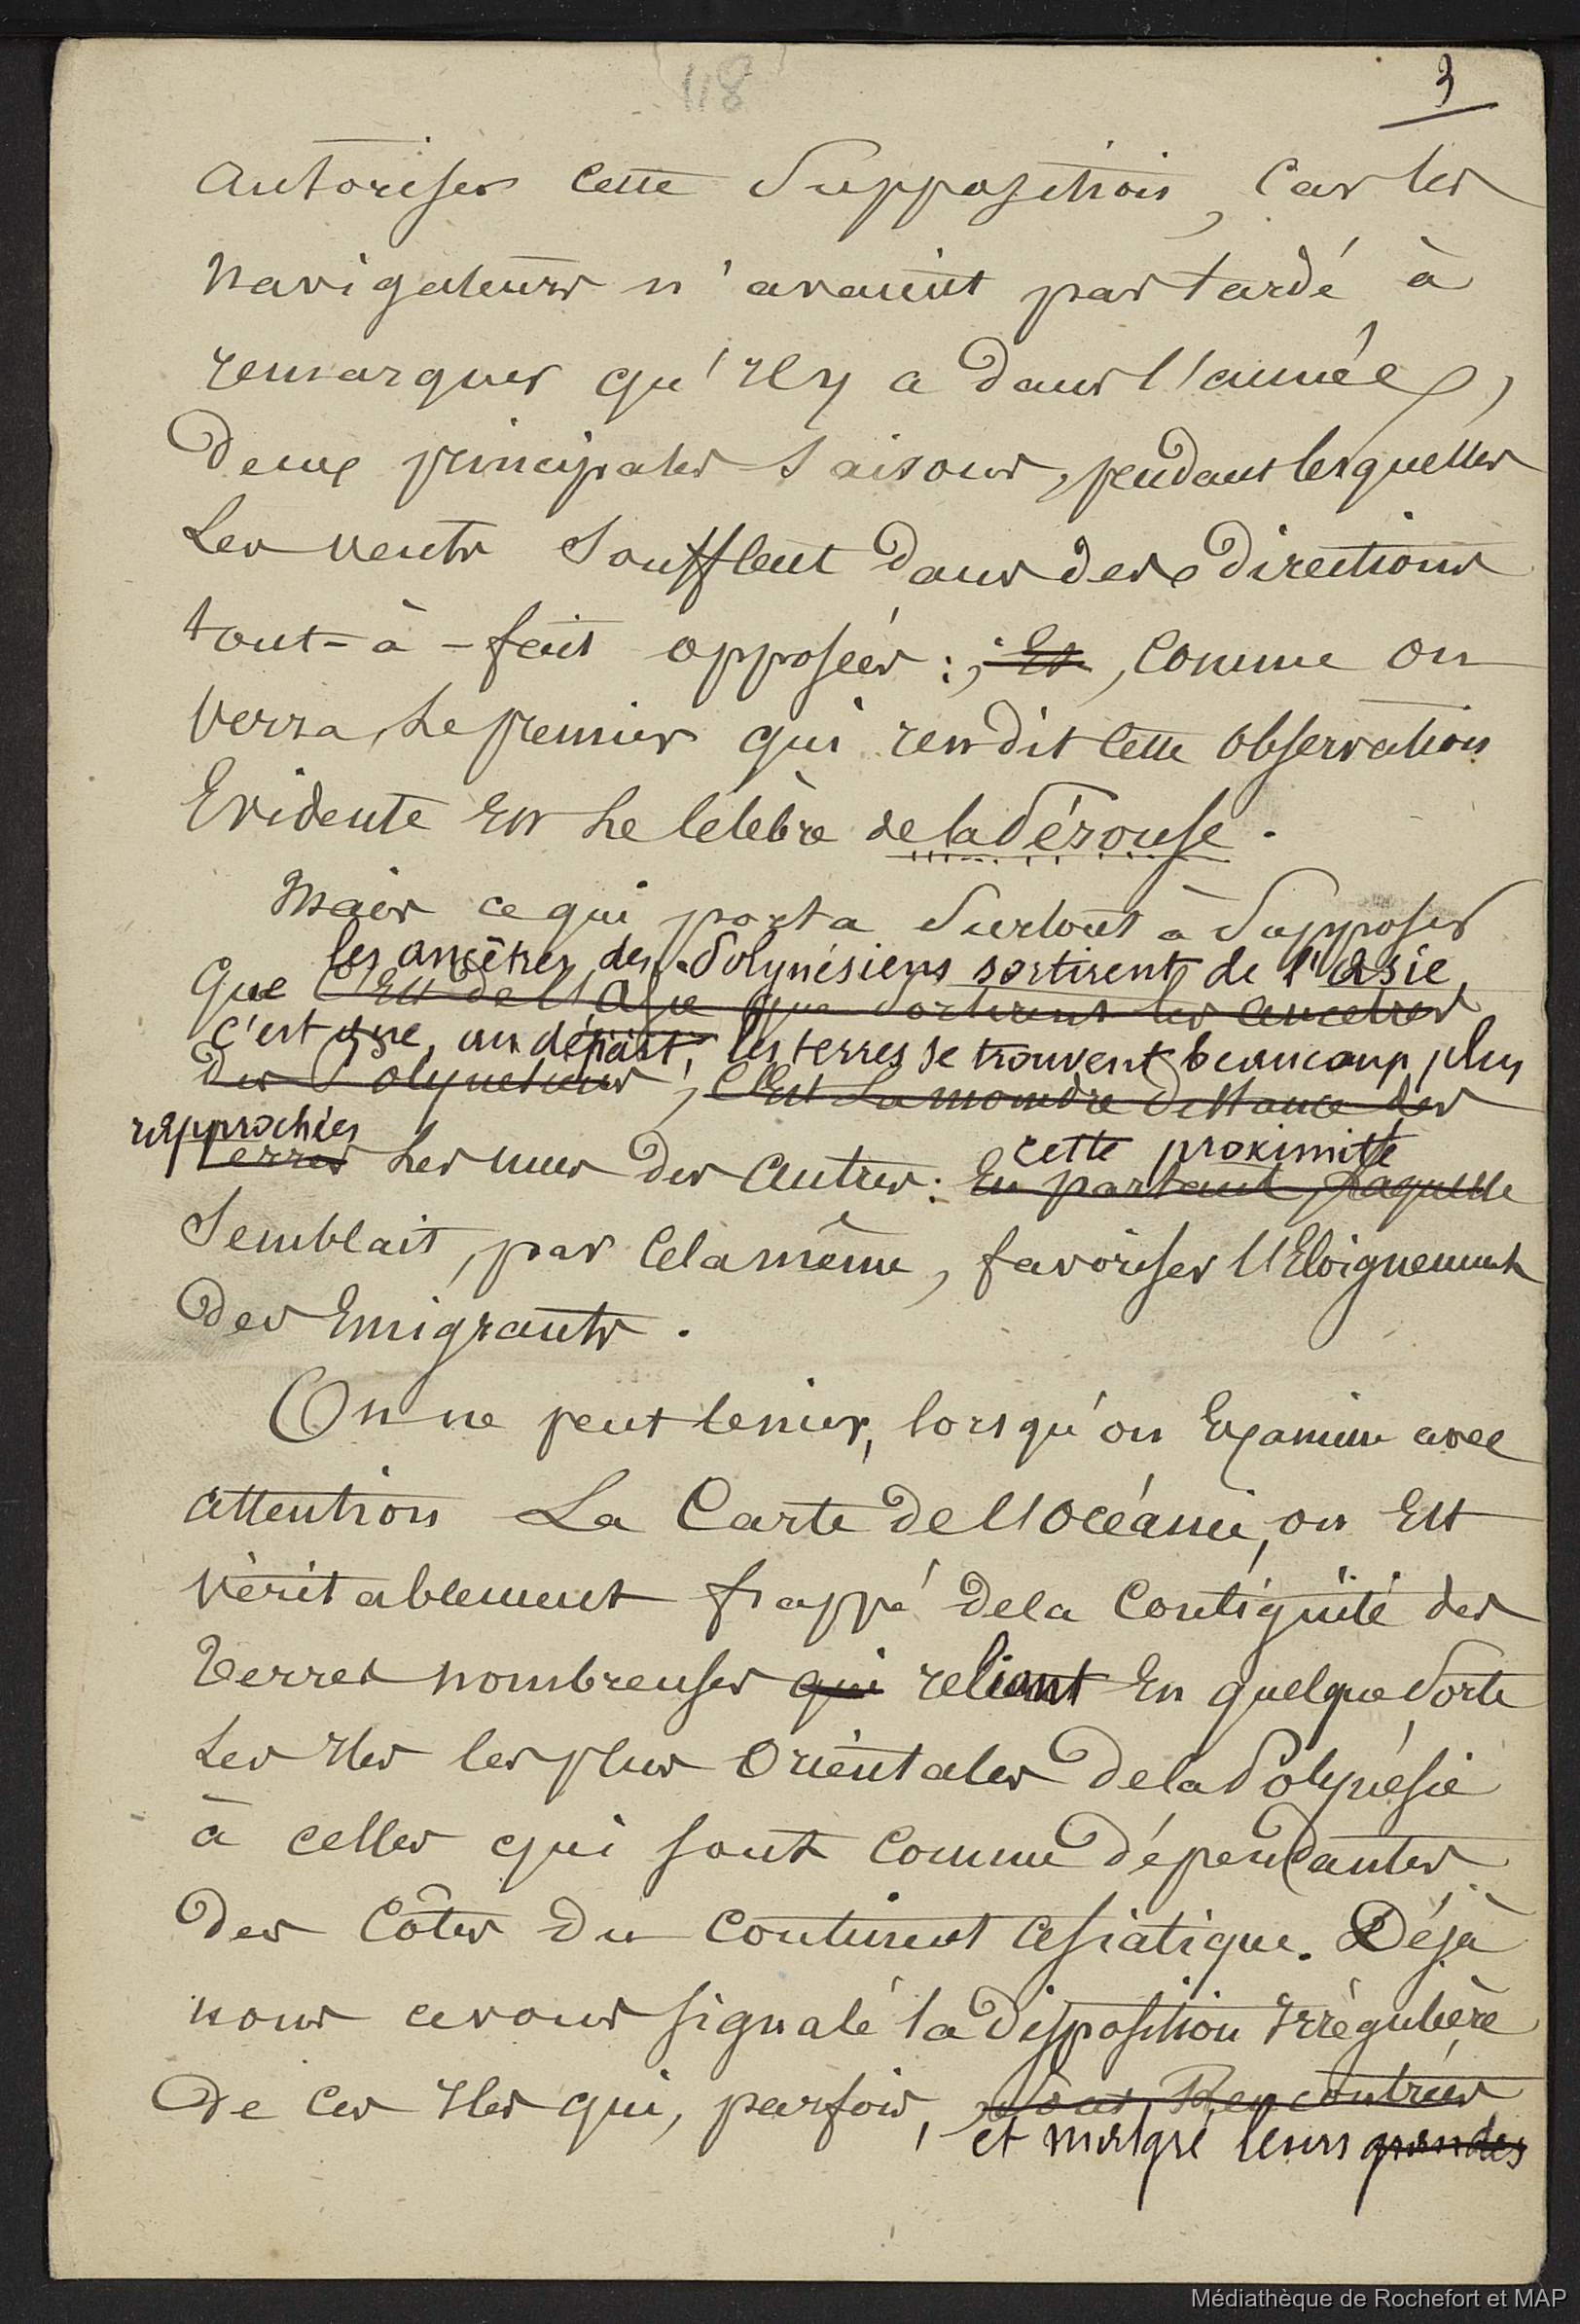 118
3
autoriser cette supposition, car les
navigateurs n'avaient pas tardé à
remarquer qu'il y a dans l'année,
deux principales saisons, pendant lesquelles
les vents soufflent dans des directions
tout-à-fait opposées : ; Et, comme on
verra, le premier qui rendit cette observation
Evidente Est le célèbre de la Pérouse.
Mais ce qui porta surtout à supposer
les ancêtres des Polynésiens sortirent de l'Asie,
que c'est de l'Asie que sortirent les ancetres
c'est que, au départ, les terres se trouvent beaucoup plus
des Polynesiens, c'est la moindre distance des
rapprochées
terres les unes des autres : cette proximité
En partant, laquelle
semblait, par cela même, favoriser l'Eloignement
des Emigrants.
On ne peut le nier, lorsqu'on Examine avec
attention La Carte de l'océanie, on Est
véritablement frappé de la contiguïté des
terres nombreuses qui reliant En quelque sorte
les Iles les plus orientales de la Polynésie
à celles qui sont comme dépendantes
des Côtes du continent asiatique. Déjà
nous avons signalé la disposition Irrégulière
de ces Iles qui, parfois, sont Rencontrées
et malgré leurs grandes
Médiathèque de Rochefort et MAP